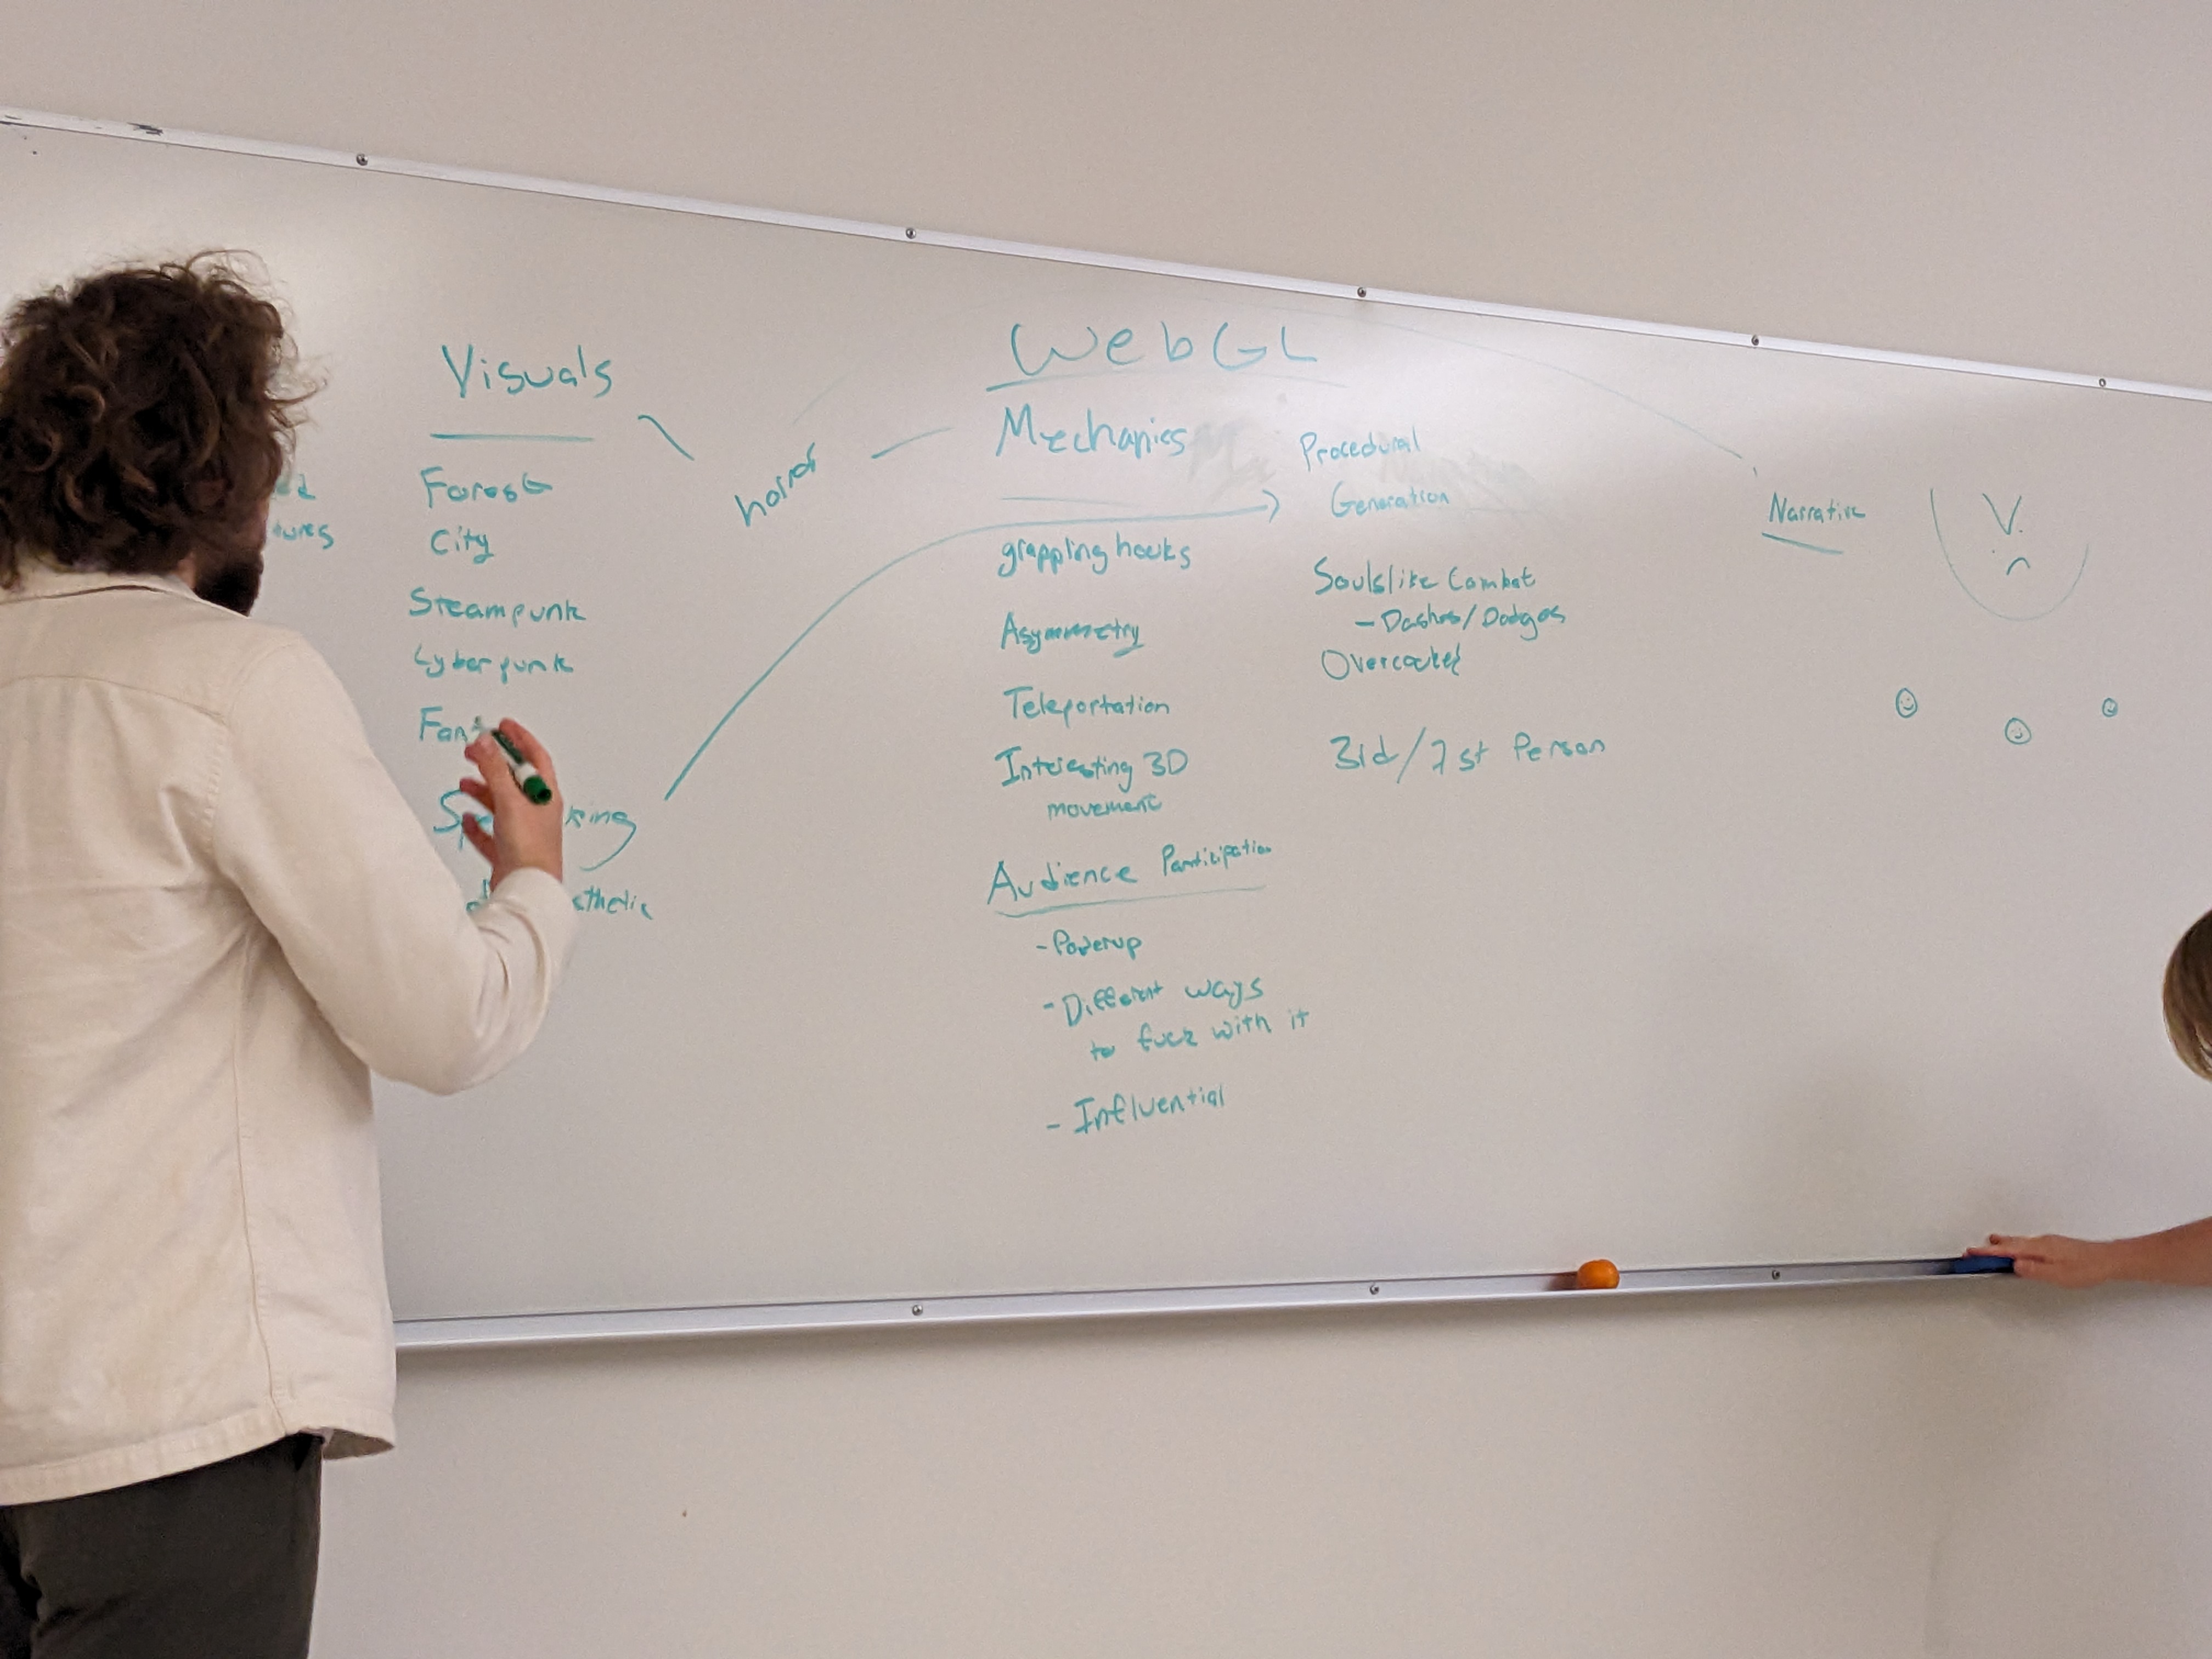 Visuals
Forest
City
Steampunk
Cyberpunk
horror
WebGL
Mechanics
grappling hooks
Asymmetry
Teleportation
Interesting 3D
movement
Audience Participation
- Powerup
- Different ways
to fuck with it
- Influential
Procedural
Generation
Soulslike Combat
- Dashes/Dodges
Overcooked
3rd/1st Person
Narrative
V.